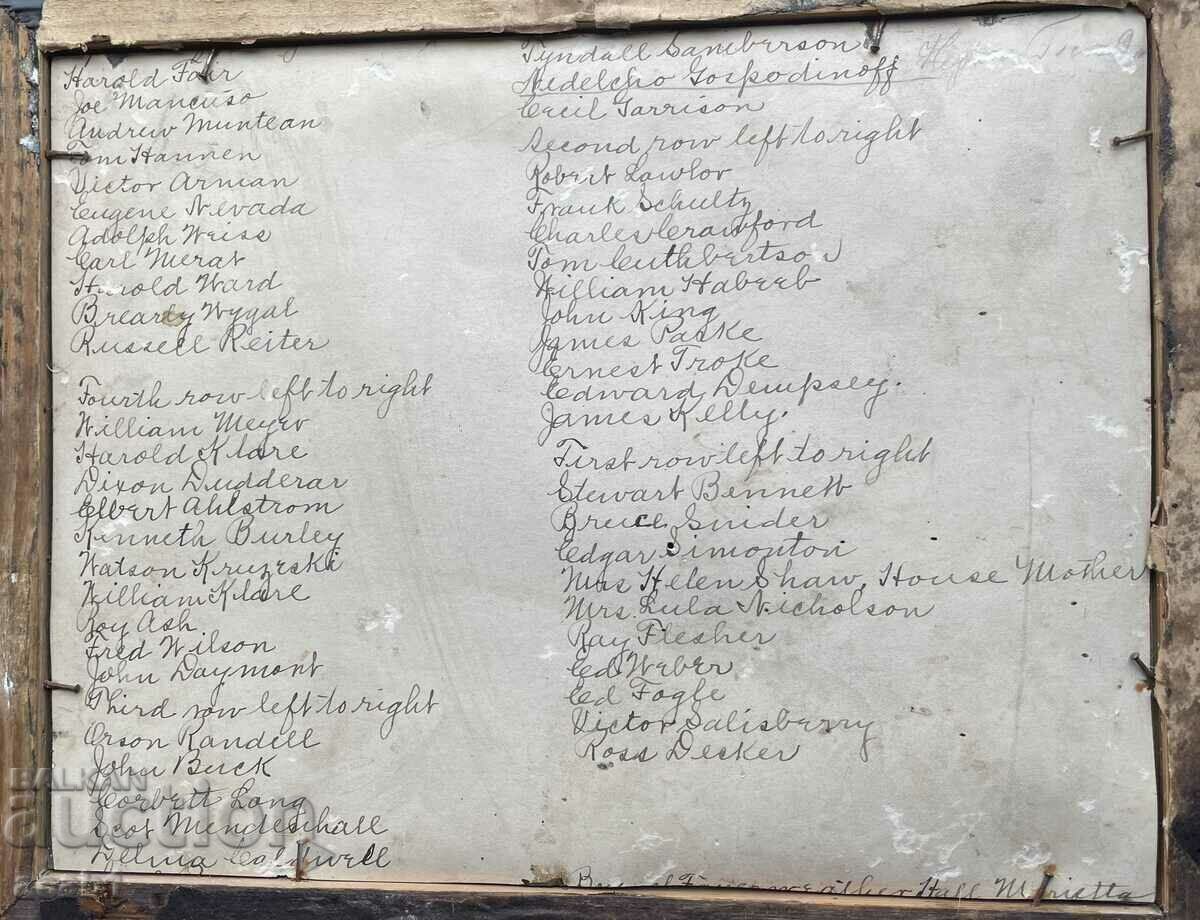 Harold Fahr
Joe Mancuso
Andrew Muntean
Tom Hannen
Victor Arman
Eugene Nevada
Adolph Weiss
Carl Merat
Harold Ward
Brearly Wygal
Russell Reiter
Fourth row left to right
William Meyer
Harold Klare
Dixon Dudderar
Elbert Ahlstrom
Kenneth Burley
Watson Kruzeski
William Klare
Roy Ash
Fred Wilson
John Daymont
Third row left to right
Orson Randell
John Buck
Corbett Long
Scot Mendenhall
Delma Coldwell
Tyndall Samberson
Nedelcho Gospodinoff
Cecil Garrison
Second row left to right
Robert Lawlor
Frank Schultz
Charles Crawford
Tom Cuthbertson
William Habeeb
John King
James Paske
Ernest Troke
Edward Dempsey.
James Kelly.
First row left to right
Stewart Bennett
Bruce Snider
Edgar Simonton
Mrs Helen Shaw, House Mother
Mrs. Lula Nicholson
Ray Flesher
Ed Weber
Ed Fogle
Victor Salisberry
Ross Decker
Hall Marietta
BALKAN
auction